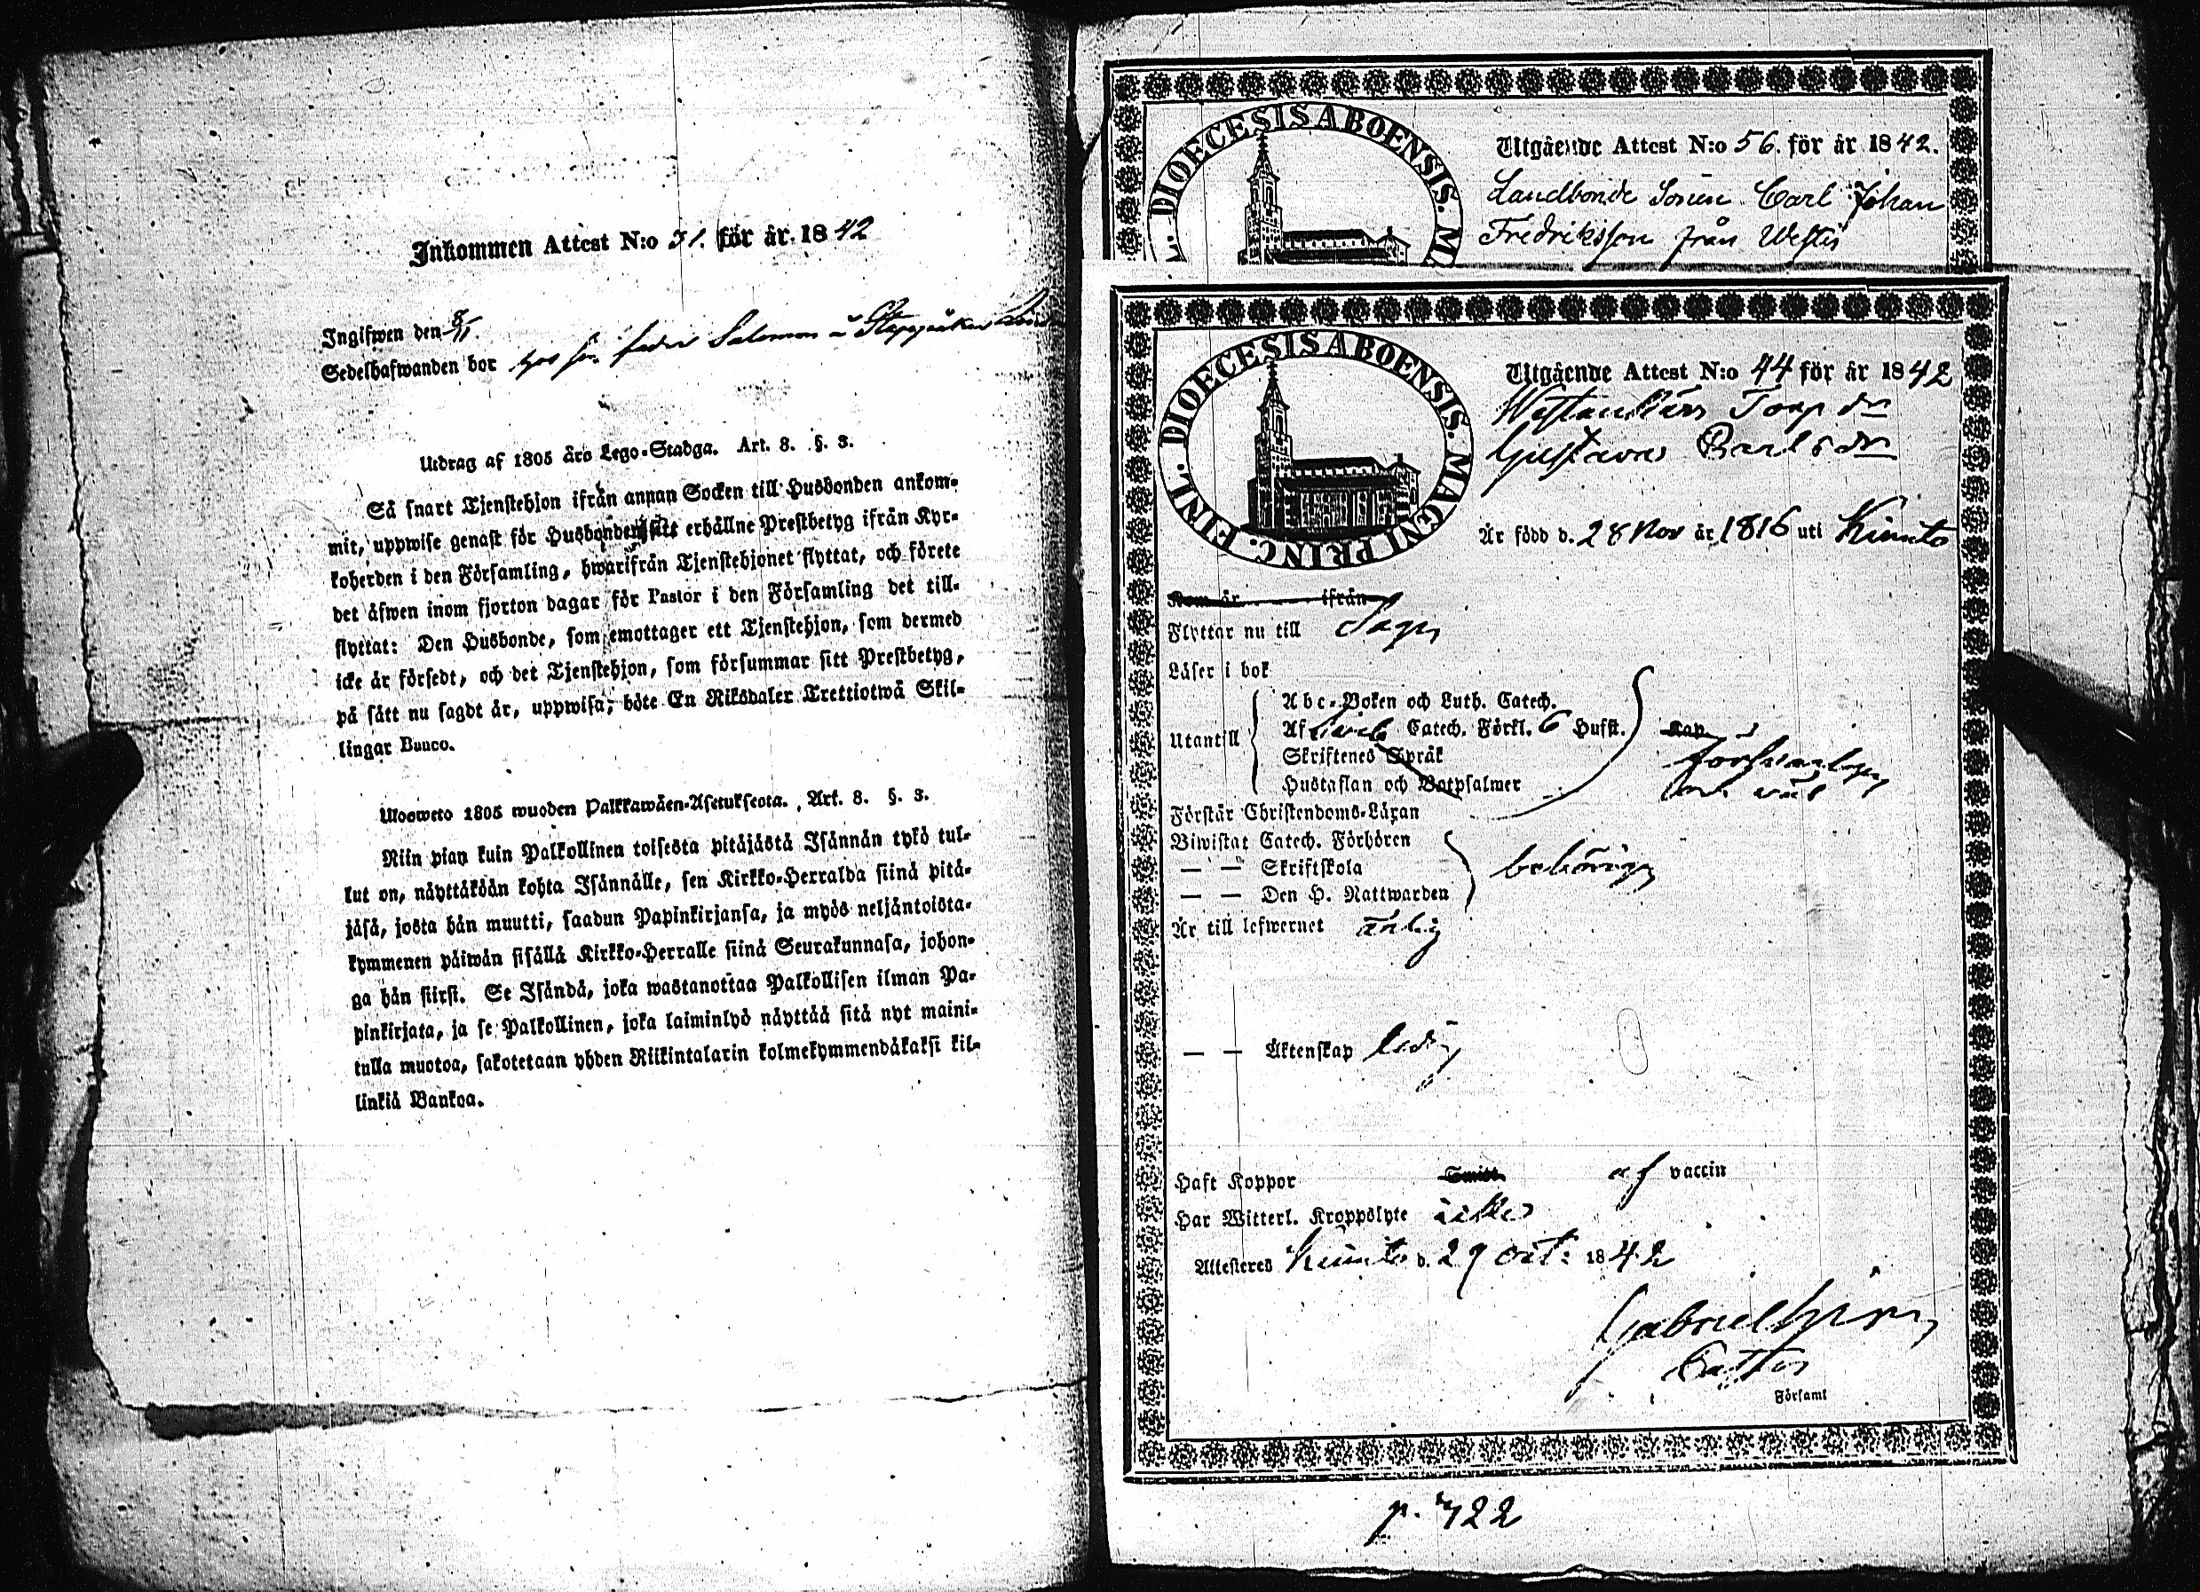 Inkommen Attest N:o 31. för år 1842
Ingifwen den 8/11.
Sedelhafwanden bor hos sin fader Salomon
Utdrag af 1805 års Lego-Stadga. Art. 8. §. 3.
Så snart Tjenstehjon ifrån annan Socken till Husbonden ankom-
mit, uppwise genast för Husbonden sitt erhållne Prestbetyg ifrån Kyr-
koherden i den Församling, hwarifrån Tjenstehjonet flyttat, och förete
det äfwen inom fjorton dagar för Pastor i den Församling det till-
flyttat: Den Husbonde, som emottager ett Tjenstehjon, som dermed
icke är försedt, och det Tjenstehjon, som försummar sitt Prestbetyg,
på sätt nu sagdt är, uppwisa, böte En Riksdaler Trettiotwå Skil-
lingar Banco.
Ulosweto 1805 wuoden Palkkawäen-Asetuksesta. Art. 8. §. 3.
Niin pian kuin Palkollinen toisesta pitäjästä Isännän tykö tul-
lut on, näyttäköön kohta Isännälle, sen Kirkko-Herralda siinä pitä-
jäsä, josta hän muutti, saadun Papinkirjansa, ja myös neljäntoista-
kymmenen päiwän sisällä Kirkko-Herralle siinä Seurakunnasa, johon-
ga hän siirsi. Se Isändä, joka wastanottaa Palkollisen ilman Pa-
pinkirjata, ja se Palkollinen, joka laiminlyö näyttää sitä nyt maini-
tulla muotoa, sakotetaan yhden Riikintalarin kolmekymmendäkaksi kil-
linkiä Bankoa.
DIOECESIS ABOENSIS. MA
L.
Utgående Attest N:o 56. för år 1842.
Landbonde Sonen Carl Johan
Fredriksson från Westis
DIOECESIS ABOENSIS. MAGNI PRINC. FINL.
Utgående Attest N:o 44 för år 1842
Torp dr
Gustava Carlsdr
Är född d. 28 Nov år 1816 uti Kimito
Kom år ifrån
Flyttar nu till Sagu
Läser i bok
Utantill
Abc-Boken och Luth. Catech.
Af Svib Catech. Förkl. 6 Hufst.
Skriftenes Språk
Hustaflan och Botpsalmer
Kap
försvarligen
och väl
Förstår Christendoms-Läran
Biwistat Catech. Förhören
— — Skriftskola
— — Den H. Nattwarden
behörigen
Är till lefwernet ärlig
— — Äktenskap ledig
Haft Koppor Smitt. af vaccin
Har Witterl. Kroppslyte icke
Attesteres Kimito d. 29 Oct: 1842
Gabriel
Pastor
Församl
p. 422